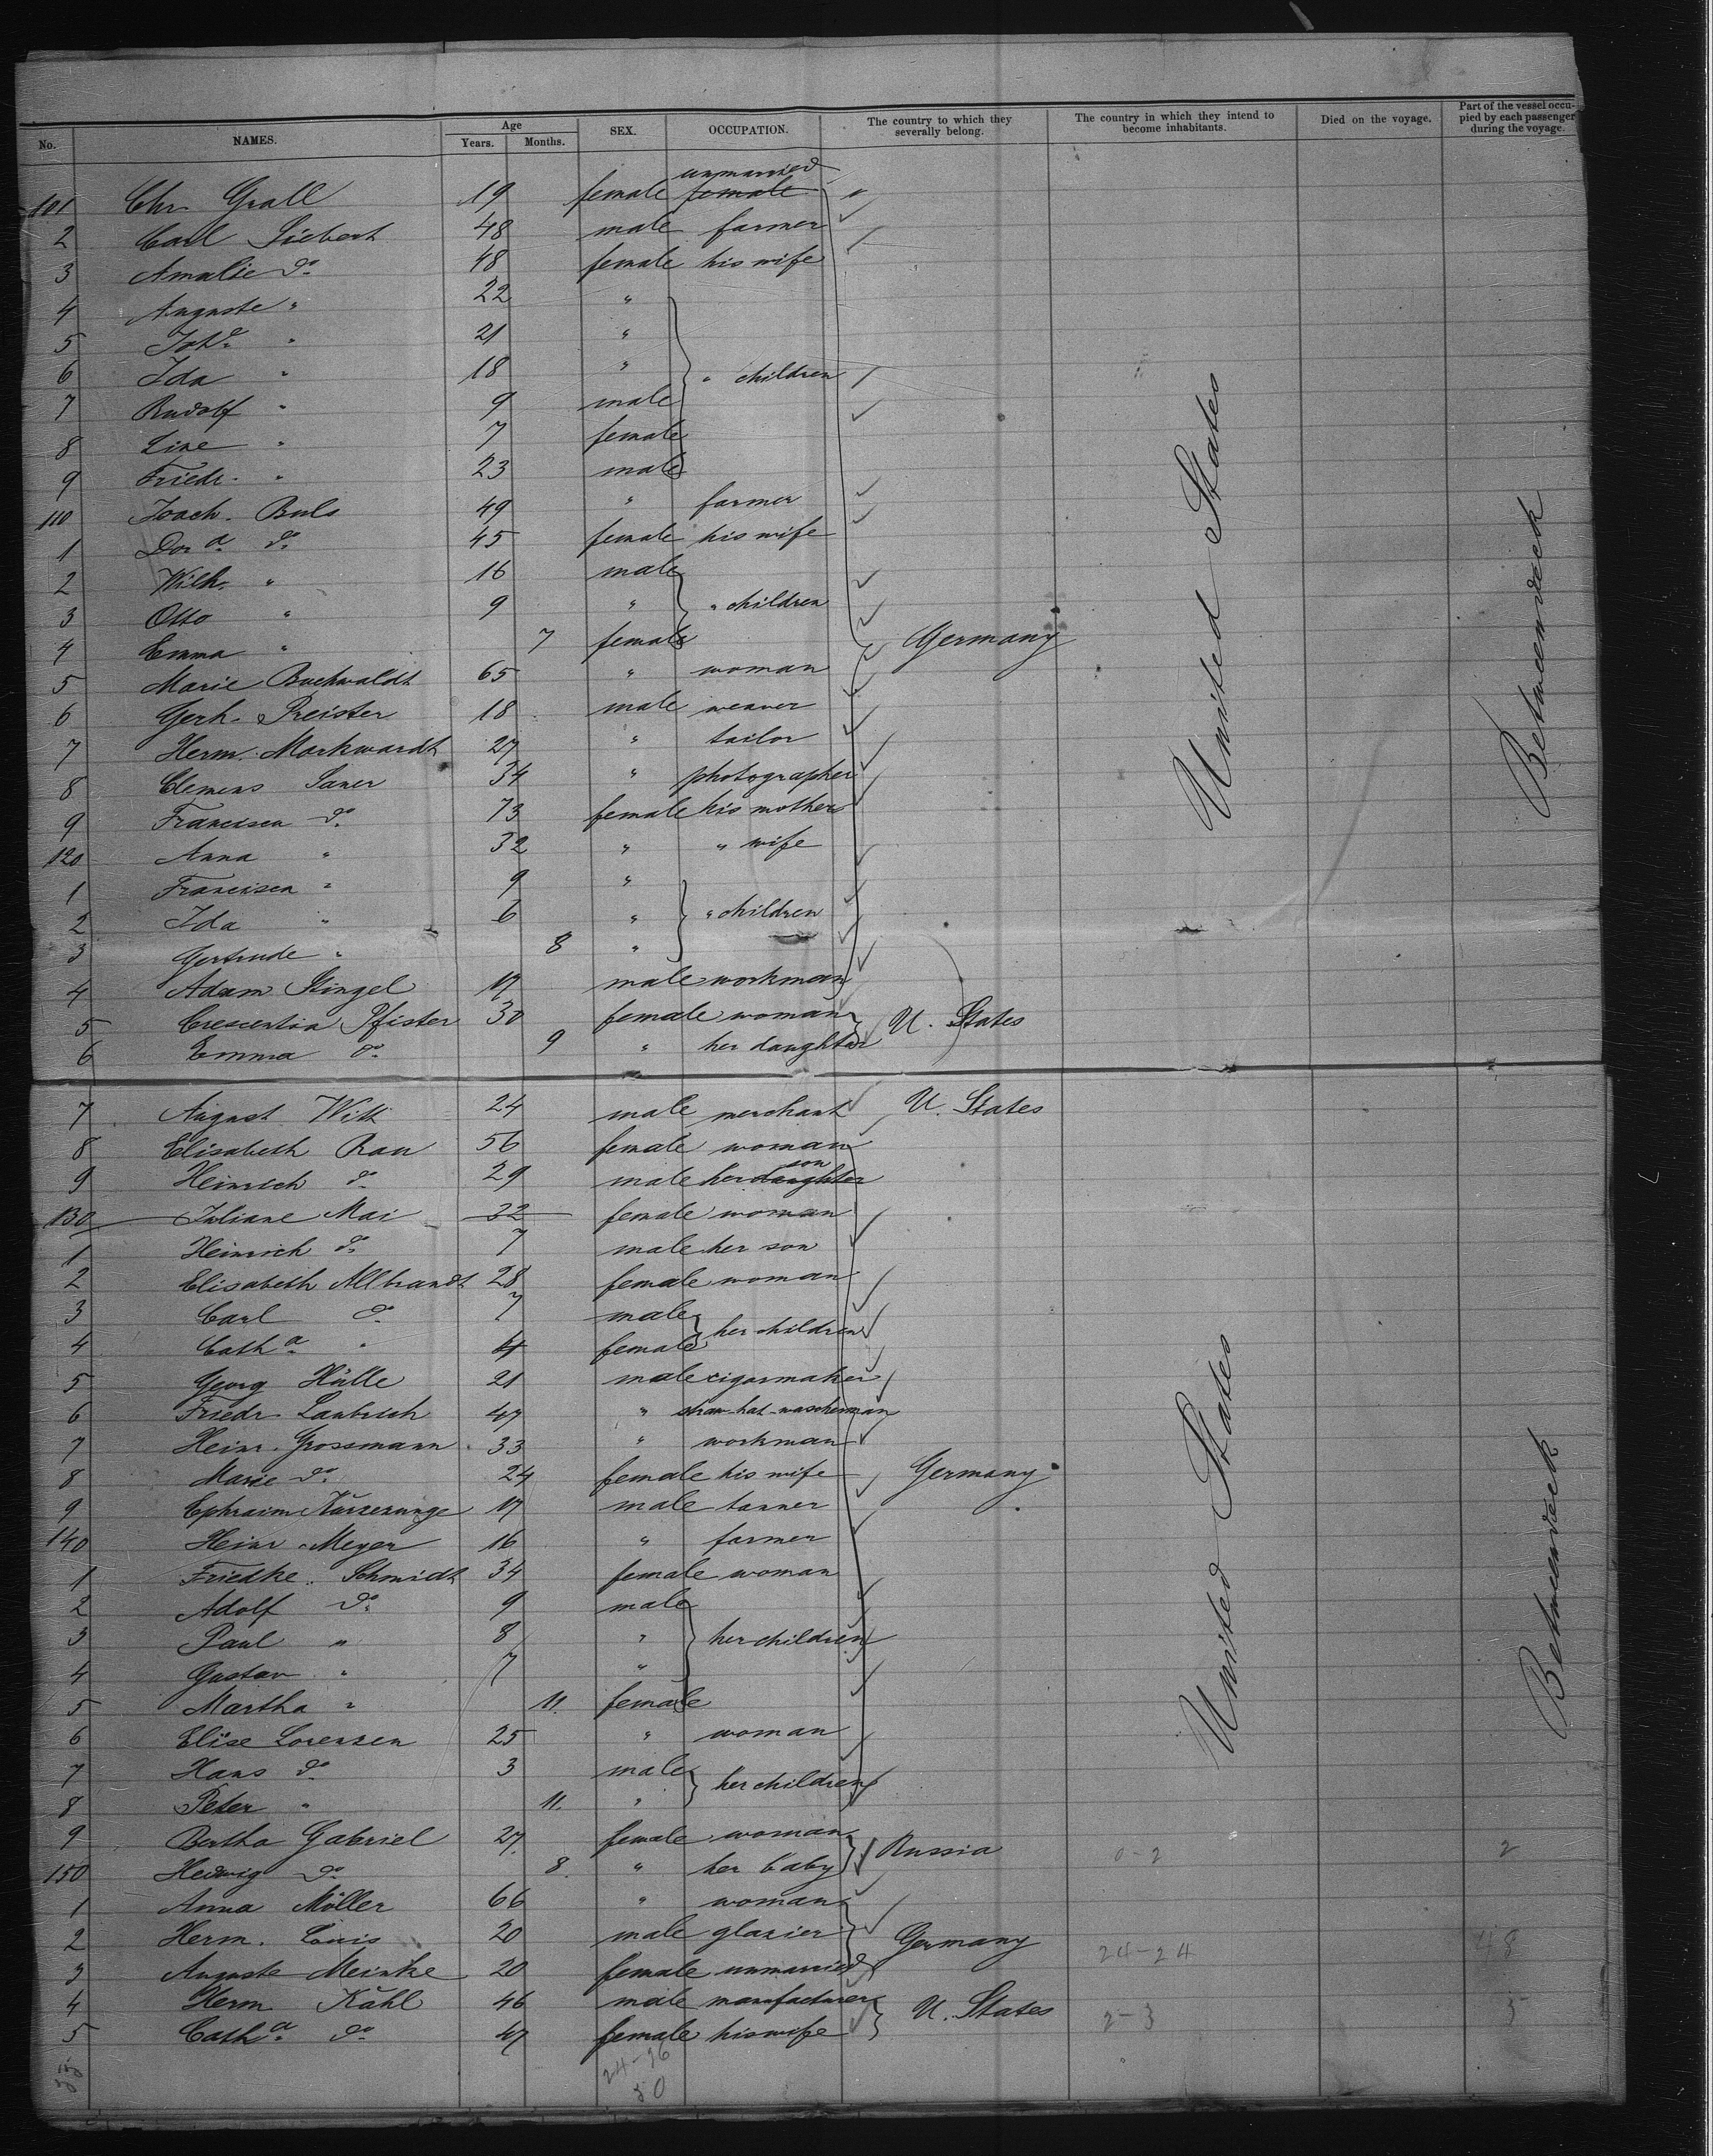 No. NAMES. Age Years. Months. SEX. OCCUPATION. The country to which they severally belong. The country in which they intend to become inhabitants. Died on the voyage. Part of the vessel occupied by each passenger during the voyage.
unmarried
101 Chr. Grall 19 female female
2 Carl Siebert 48 male farmer
3 Amalie do 48 female his wife
4 Auguste " 22 "
5 Joha " 21 "
6 Ida " 18 " " children
7 Rudolf " 9 male
8 Line " 7 female
9 Friedr. " 23 male
110 Joach. Buls 49 " farmer
1 Dora do 45 female his wife
2 Wilh. " 16 male
3 Otto " 9 " " children
4 Emma " 7 female Germany
5 Marie Buchwaldt 65 " woman
6 Gerh. Preister 18 male weaver
7 Herm. Markwardt 27 " tailor
8 Clemens Saner 34 " photographer
9 Francisca do 73 female his mother
120 Anna " 32 " " wife
1 Francisca " 9 "
2 Ida " 6 " " children
3 Gertrude " 8 "
4 Adam Stingel 17 male workman
5 Crescentia Pfister 30 female woman U. States
6 Emma do 9 " her daughter
United States
Betweendeck
7 August Witt 24 male merchant U. States
8 Elisabeth Rau 56 female woman
son
9 Heinrich do 29 male her daughter
130 Juliane Mai 32 female woman
1 Heinrich do 7 male her son
2 Elisabeth Allbrandt 28 female woman
3 Carl do 7 male
4 Catha " 4 female her children
5 Georg Hülle 21 male cigarmaker
6 Friedr. Laubrich 47 " straw-hat-wascherman
7 Heinr. Grossmann 33 " workman
8 Marie do 24 female his wife Germany
9 Ephraim Kürzerunge 17 male tanner
140 Heinr. Meyer 16 " farmer
1 Friedke. Schmidt 34 female woman
2 Adolf do 9 male
3 Paul " 8 " her children
4 Gustav " 7 "
5 Martha " 11 female
6 Elise Lorenzen 25 " woman
7 Hans do 3 male
8 Peter " 11 " her children
9 Bertha Gabriel 27 female woman Russia 0-2 2
150 Hedwig do 8 " her baby
1 Anna Möller 66 " woman
2 Herm. Louis 20 male glazier Germany 24-24 48
3 Auguste Meinke 20 female unmarried
4 Herm Kähl 46 male manufacturer U. States 2-3 5
5 Catha do 47 female his wife
United States
Betweendeck
55
24-26
50